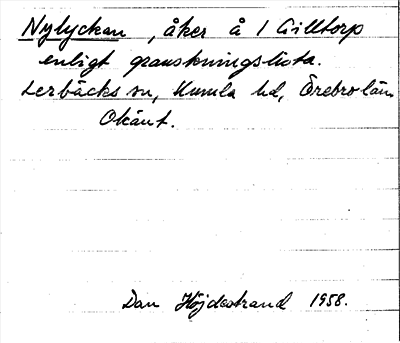 Nylyckan, åker å 1 Gilltorp
enligt granskningslista.
Lerbäcks sn, Kumla hd, Örebro län
Okänt.
Dan Höjdestrand 1958.